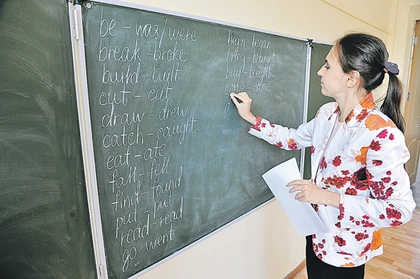 be - was/were
break - broke
build - built
cut - cut
draw - drew
catch - caught
eat - ate
fall - fell
find - found
put - put
read - read
go - went
begin - began
bring - brought